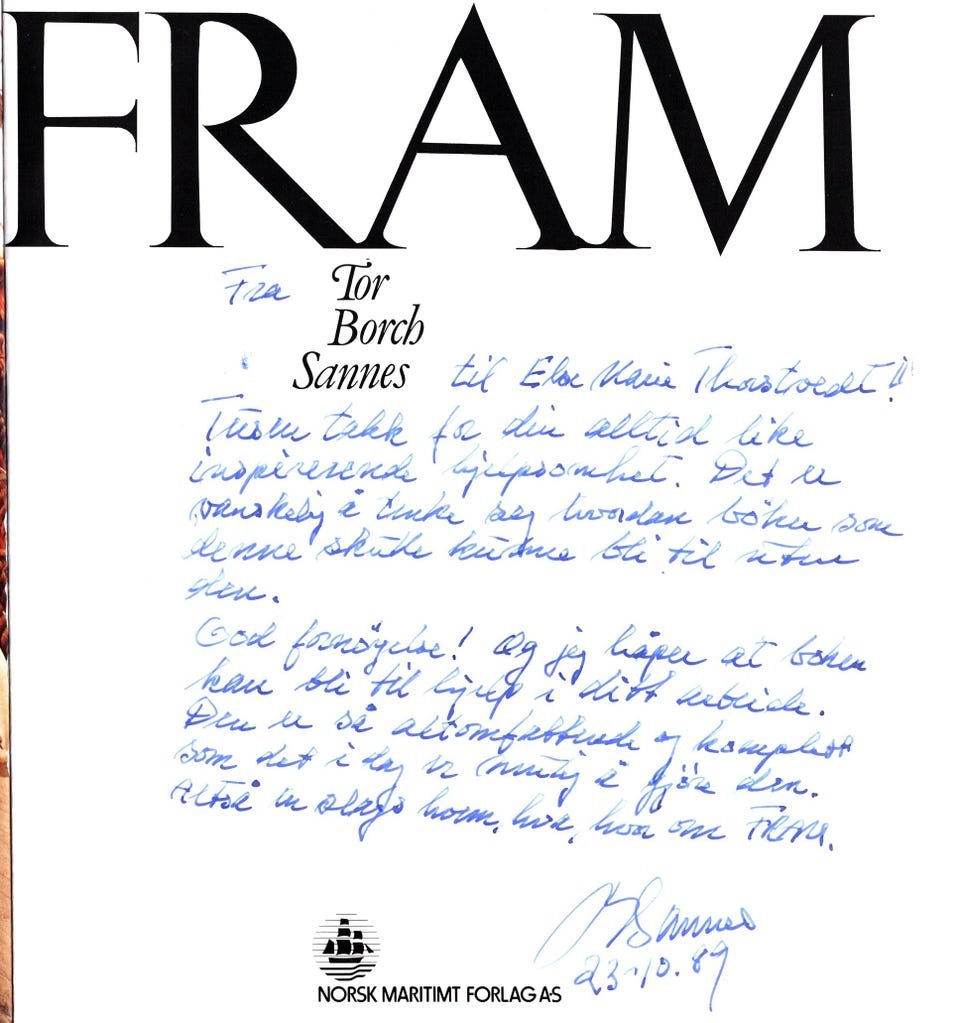 FRAM
Fra Tor
Borch
Sannes til Else Marie Thorstvedt!!
Tusen takk for din alltid like
inspirerende hjelpsomhet. Det er
vanskelig å tenke seg hvordan böker som
denne skulle kunne bli til uten
den.
God fornöyelse! Og jeg håper at boken
kan bli til hjelp i ditt arbeide.
Den er så altomfattende og komplett
som det i dag er mulig å gjöre den.
Altså en slags hvem, hva, hvor om FRAM.
TBSannes
23-10.89
NORSK MARITIMT FORLAG A·S